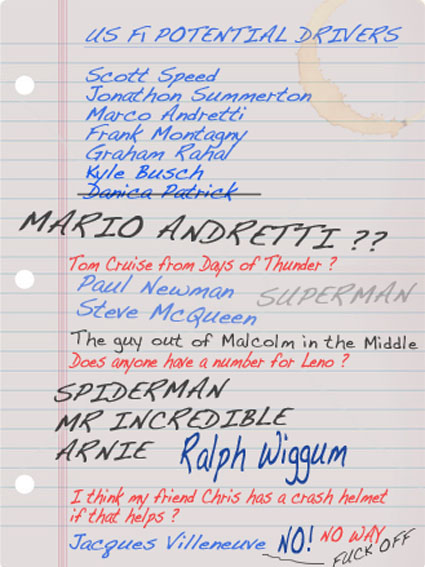 US F1 POTENTIAL DRIVERS
Scott Speed
Jonathon Summerton
Marco Andretti
Frank Montagny
Graham Rahal
Kyle Busch
Danica Patrick
MARIO ANDRETTI ??
Tom Cruise from Days of Thunder ?
Paul Newman
SUPERMAN
Steve McQueen
The guy out of Malcolm in the Middle
Does anyone have a number for Leno ?
SPIDERMAN
MR INCREDIBLE
ARNIE
Ralph Wiggum
I think my friend Chris has a crash helmet
if that helps ?
Jacques Villeneuve NO! NO WAY
FUCK OFF